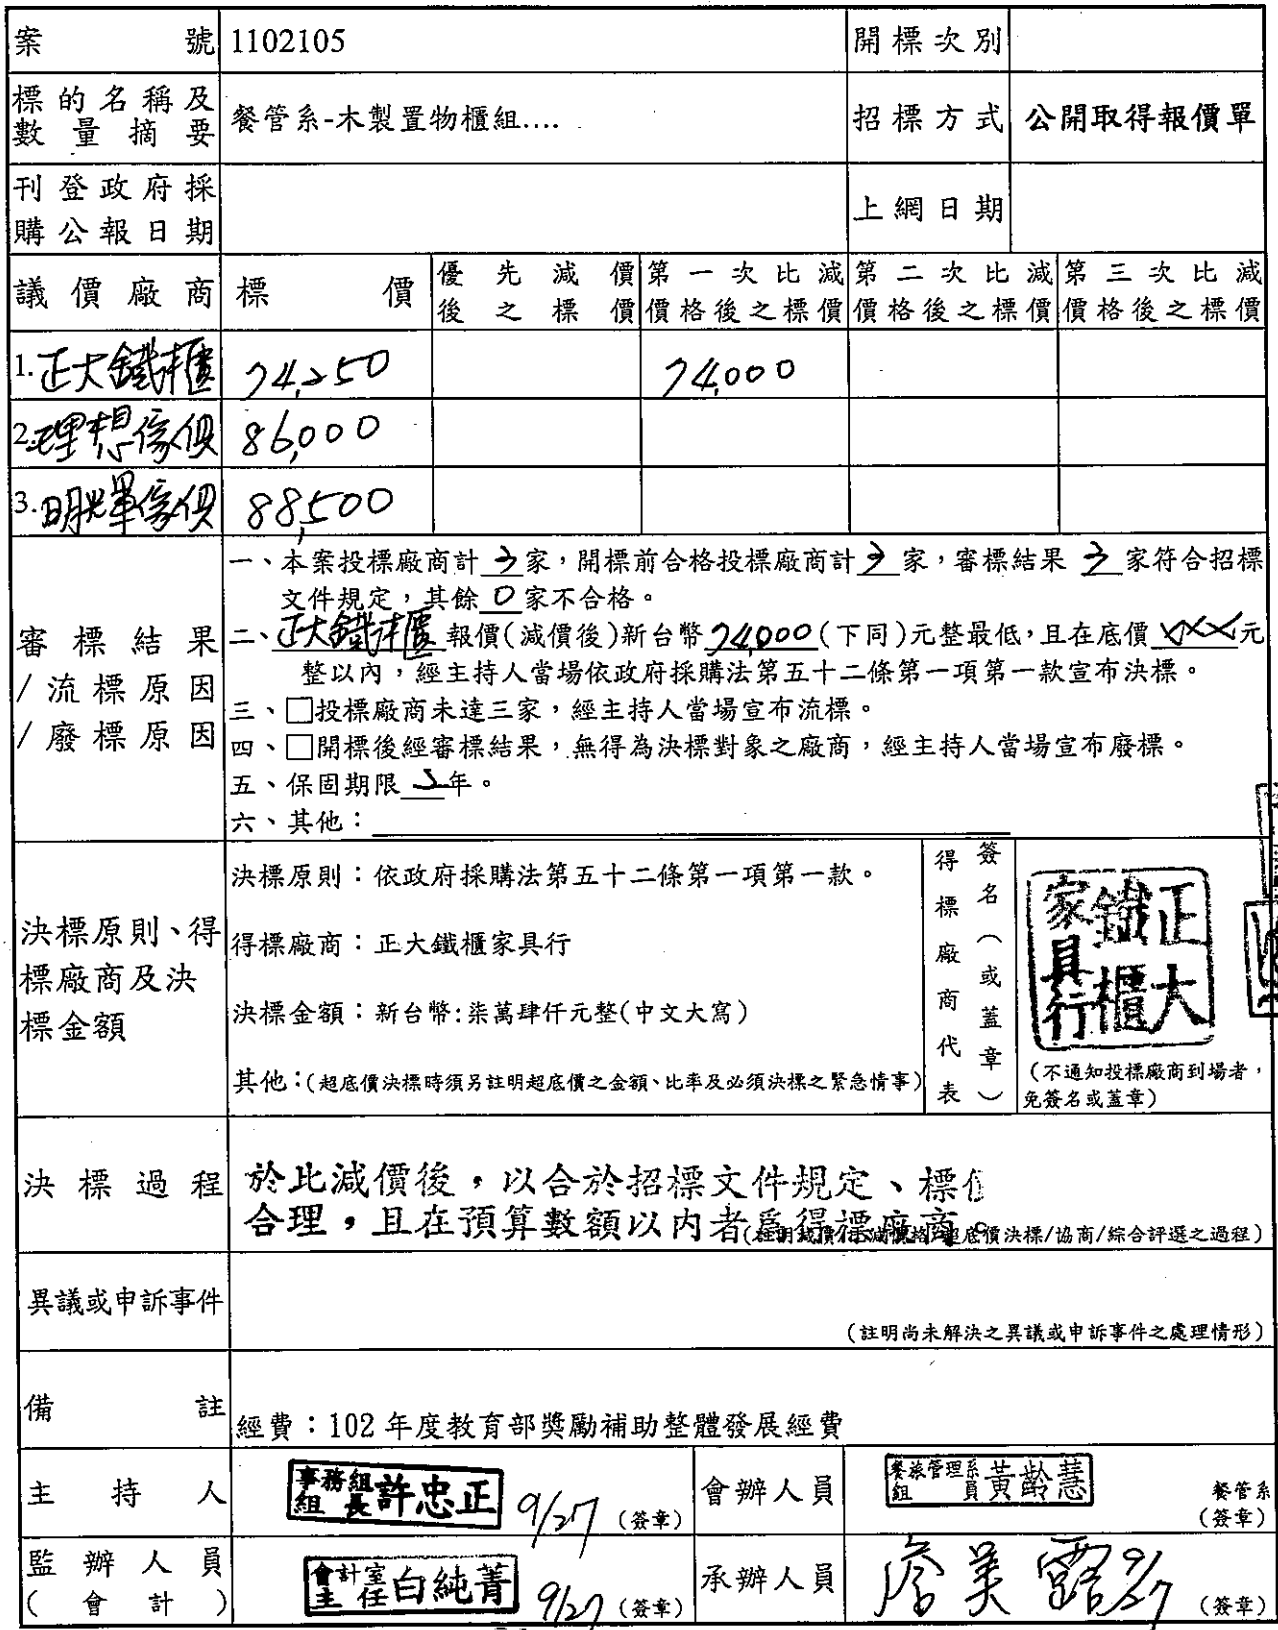 案號 1102105 開標次別
標的名稱及數量摘要 餐管系-木製置物櫃組.... 招標方式 公開取得報價單
刊登政府採購公報日期 上網日期
議價廠商 標價 優先減價後之標價 第一次比減價格後之標價 第二次比減價格後之標價 第三次比減價格後之標價
1.正大鐵櫃 74,250 74,000
2.理想傢俱 86,000
3.明輝傢俱 88,500
審標結果/流標原因/廢標原因
一、本案投標廠商計 3 家，開標前合格投標廠商計 3 家，審標結果 3 家符合招標
文件規定，其餘 0 家不合格。
二、正大鐵櫃 報價(減價後)新台幣 74,000 (下同)元整最低，且在底價 XXX 元
整以內，經主持人當場依政府採購法第五十二條第一項第一款宣布決標。
三、□投標廠商未達三家，經主持人當場宣布流標。
四、□開標後經審標結果，無得為決標對象之廠商，經主持人當場宣布廢標。
五、保固期限 年。
六、其他：
決標原則、得標廠商及決標金額
決標原則：依政府採購法第五十二條第一項第一款。
得標廠商：正大鐵櫃家具行
決標金額：新台幣:柒萬肆仟元整(中文大寫)
其他：(超底價決標時須另註明超底價之金額、比率及必須決標之緊急情事)
得標廠商代表簽名（或蓋章）
正大鐵櫃家具行
(不通知投標廠商到場者，
免簽名或蓋章)
決標過程
於比減價後，以合於招標文件規定、標價
合理，且在預算數額以內者為得標廠商。
超底價決標/協商/綜合評選之過程)
異議或申訴事件
(註明尚未解決之異議或申訴事件之處理情形)
備註 經費：102 年度教育部獎勵補助整體發展經費
主持人 事務組組長 許忠正 9/27 (簽章) 會辦人員 餐旅管理系組員 黃齡慧 餐管系(簽章)
監辦人員(會計) 會計室主任 白純菁 9/27 (簽章) 承辦人員 詹美露 9/27 (簽章)